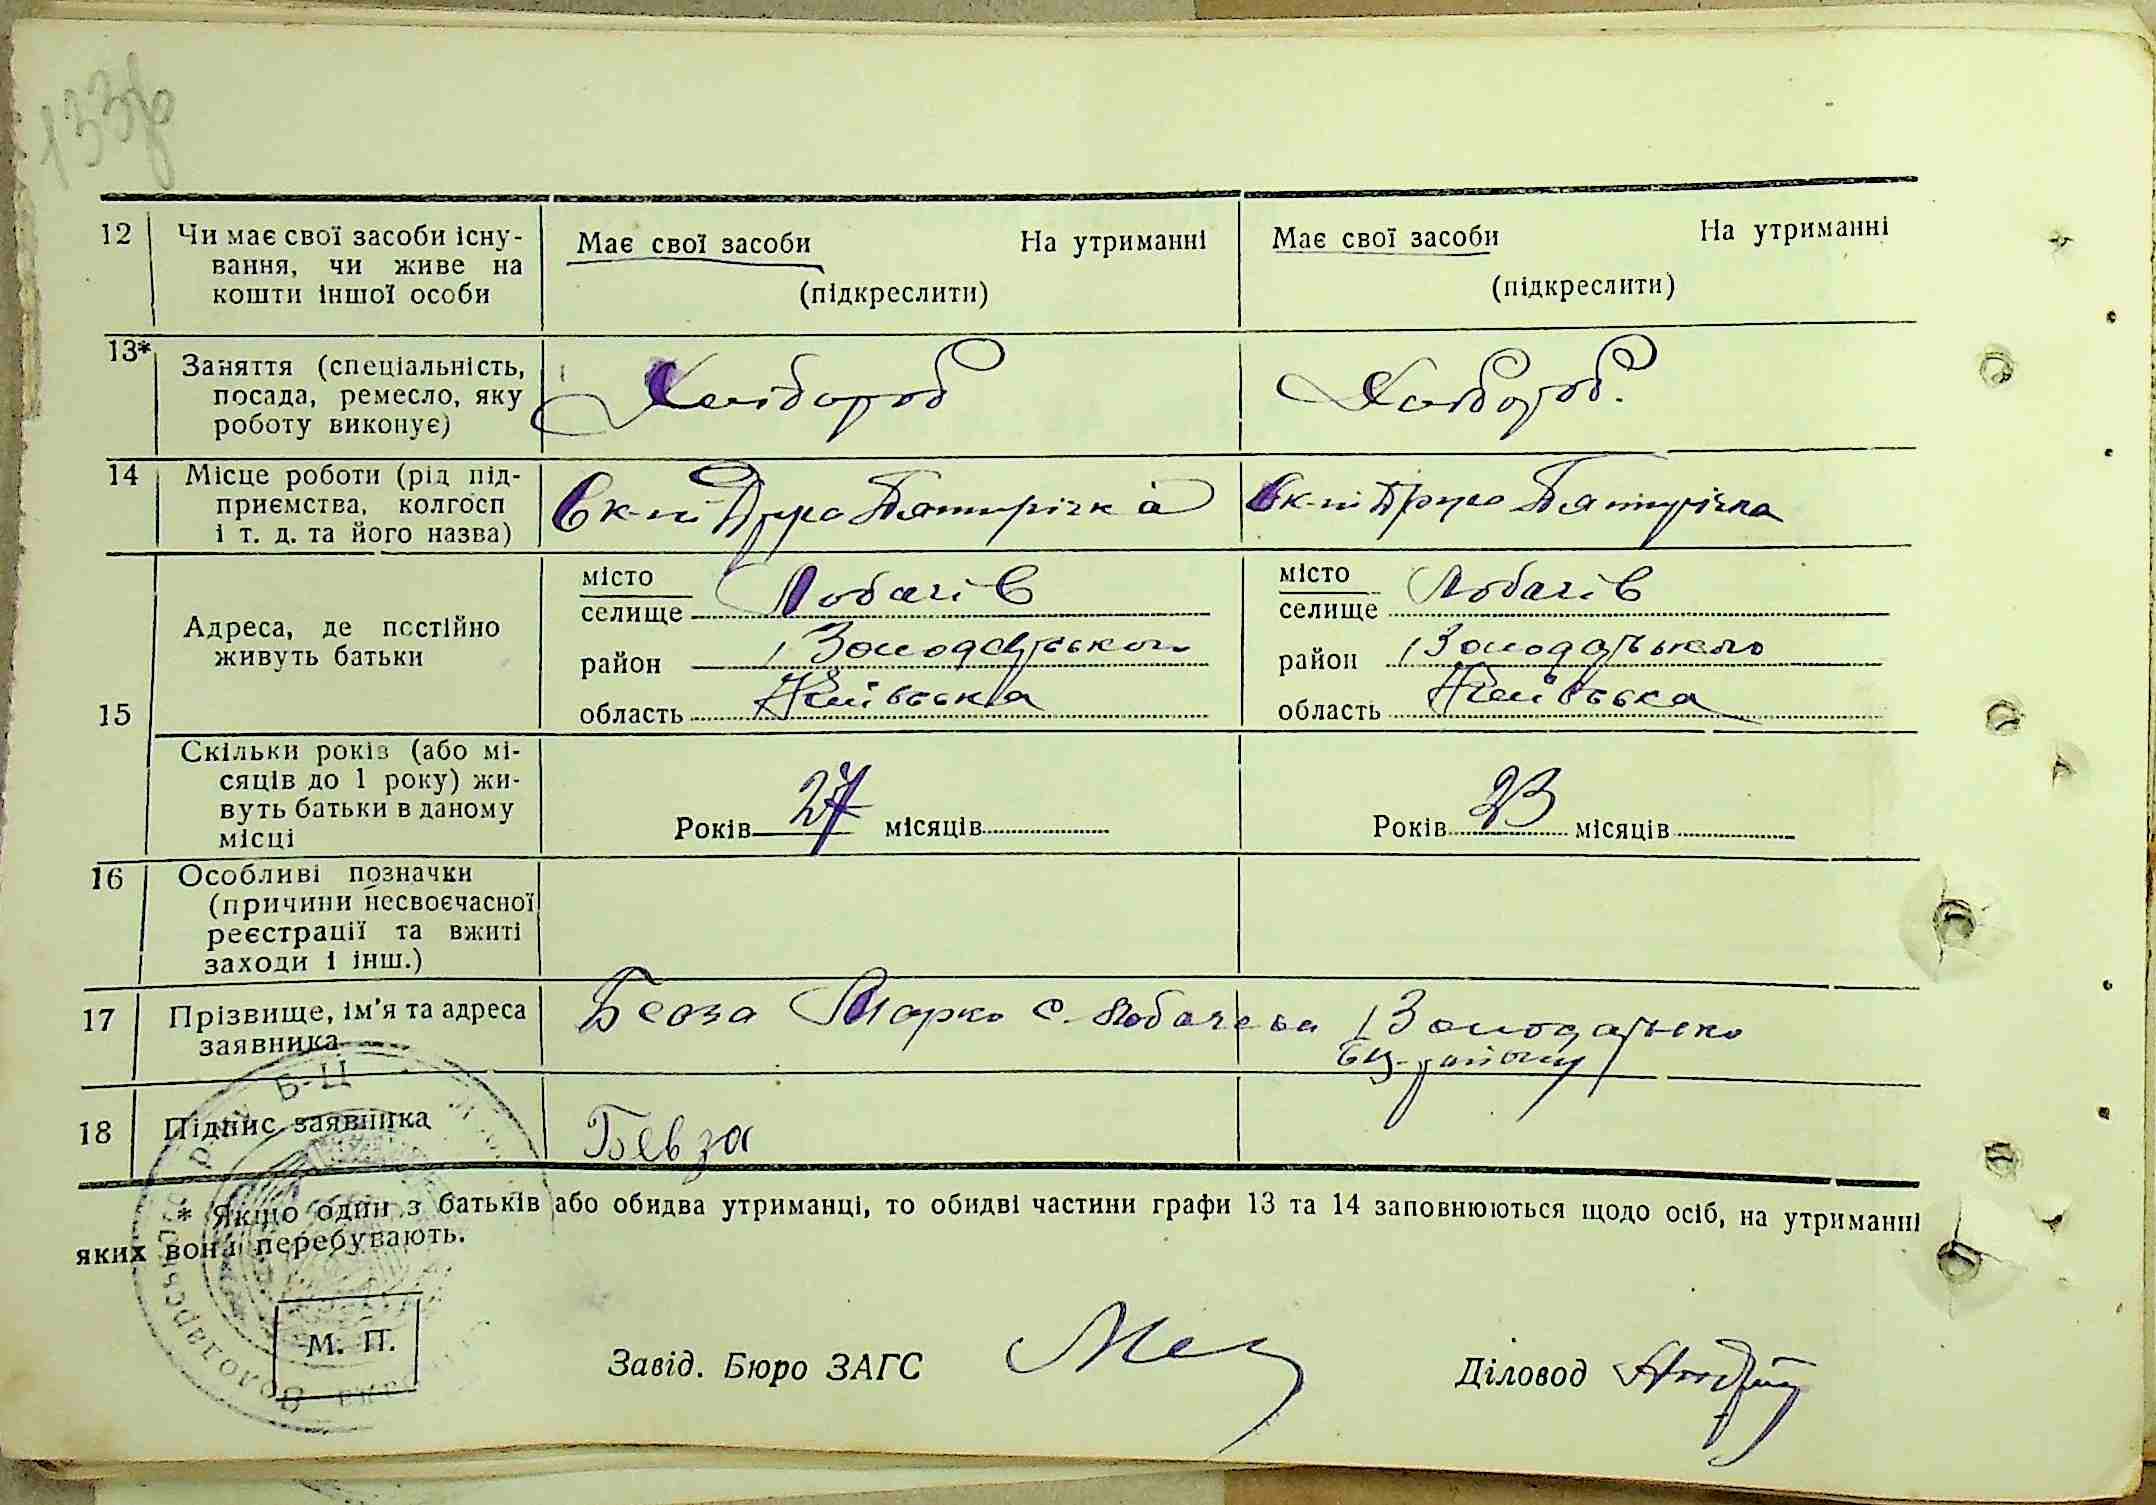 133
12 Чи має свої засоби існу- Має свої засоби На утриманні Має свої засоби На утриманні
вання, чи живе на
кошти іншої особи (підкреслити) (підкреслити)
13* Заняття (спеціальність, Хлібороб Хлібороб.
посада, ремесло, яку
роботу виконує)
14 Місце роботи (рід під- Друга Пятирічка Друга Пятирічка
приємства, колгосп
і т. д. та його назва)
15 Адреса, де постійно живуть батьки
місто місто
селище Лобачів селище Лобачів
район Володарського район Володарського
область Київська область Київська
Скільки років (або мі-
сяців до 1 року) жи-
вуть батьки в даному Років 27 місяців Років 23 місяців
місці
16 Особливі позначки
(причини несвоєчасної
реєстрації та вжиті
заходи і інш.)
17 Прізвище, ім'я та адреса Бевза Марко с. Лобачева Володарсько
заявника району
18 Підпис заявника Бевза
* Якщо один з батьків або обидва утриманці, то обидві частини графи 13 та 14 заповнюються щодо осіб, на утриманні
яких вони перебувають.
М. П.
Завід. Бюро ЗАГС Діловод
Володарського р-ну Б-Ц